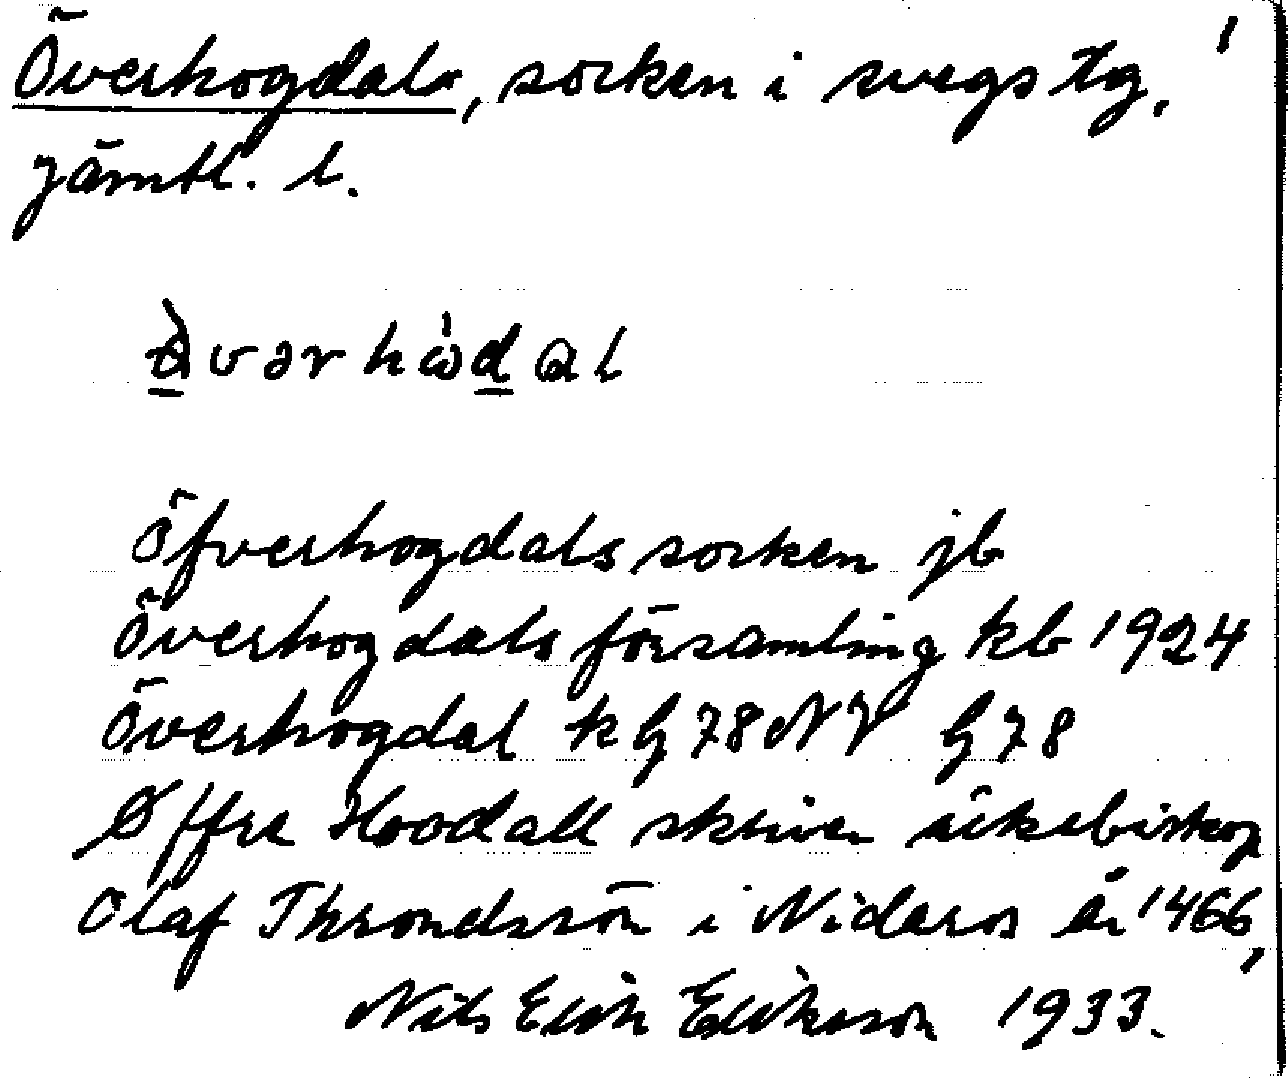 Överhogdals, socken i svegs tg. 1
Jämtl. l.
Öfverhogdals socken jb
Överhogdals församling kb 1924
Överhogdal k G 78 NV G 78
Øffre Hoodall skriver ärkebiskop
Olaf Throndssön i Nidaros år 1466,
Nils Erik Erikson 1933.